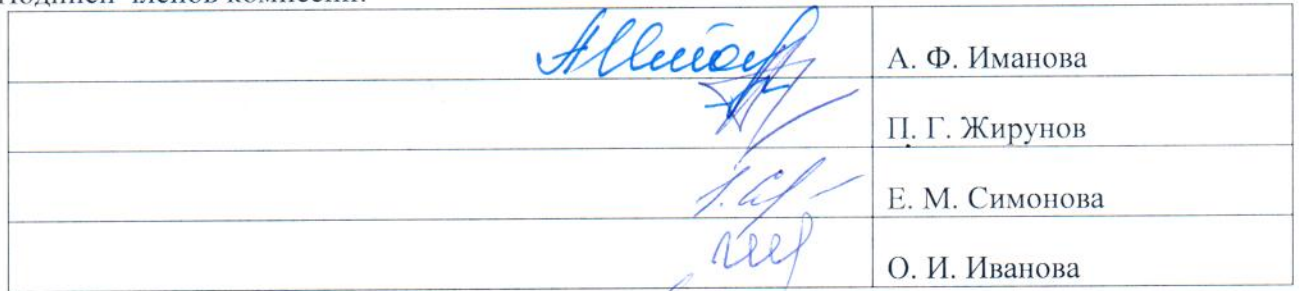 членов комиссии:
А. Ф. Иманова
П. Г. Жирунов
Е. М. Симонова
О. И. Иванова